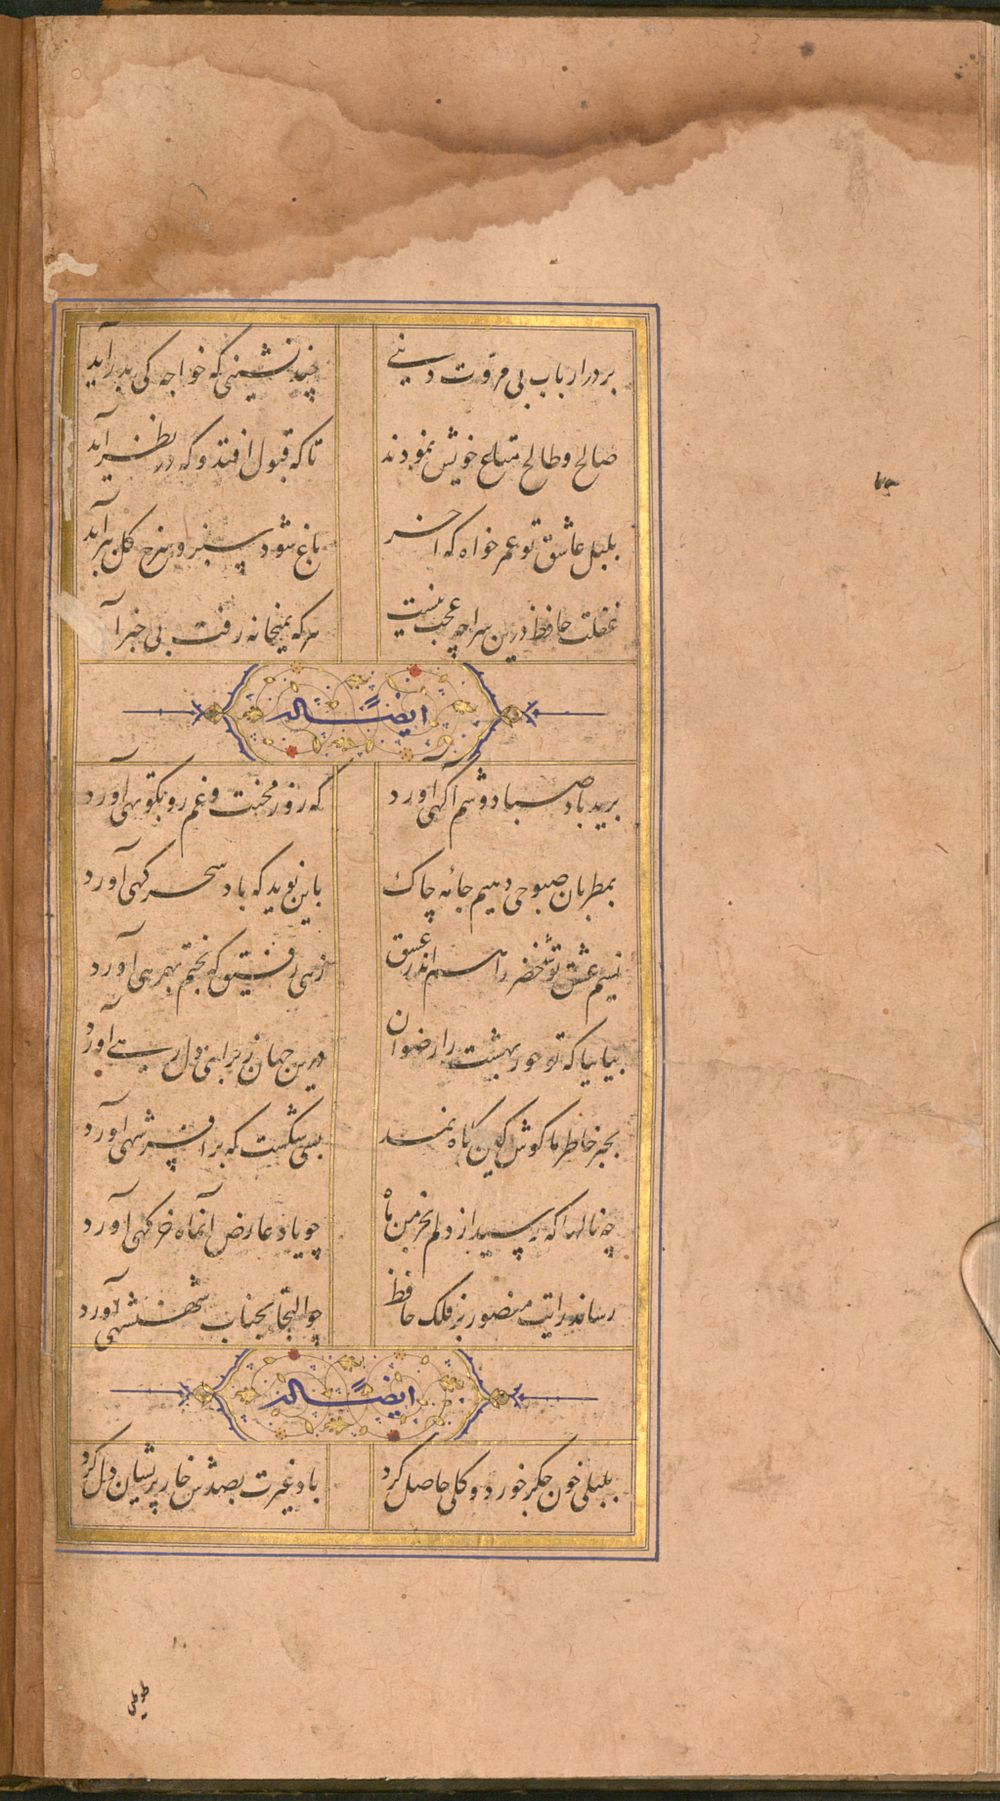 بر در ارباب بی مروت دنیی چند نشینی که خواجه کی بدر آید
صالح و طالح متاع خویش نمودند تا که قبول افتد و که در نظر آید
بلبل عاشق تو عمر خواه که آخر باغ شود سبز و سرخ گل ببر آید
غفلت حافظ درین سراچه عجب نیست هر که بمیخانه رفت بی خبر آ
ایضاً له
برید باد صبا دوشم آگهی آورد که روز محنت و غم رو بکوتهی آورد
بمطربان صبوحی دهیم جامه چاک باین نوید که باد سحر گهی آورد
نسیم عشق تو شد خضر راهم اندر عشق زهی رفیق که بختم بهمرهی آورد
بیا بیا که تو حور بهشت را رضوان درین جهان ز برای دل رهی آورد
بجبر خاطر ما کوش کین کلاه نمد بسی شکست که بر افسر شهی آورد
چه نالها که رسید از دلم بخرمن ماه چو یاد عارض آنماه خرگهی آورد
رساند رایت منصور بر فلک حافظ چو التجا بجناب شهنشهی آورد
ایضاً له
بلبلی خون جگر خورد و گلی حاصل کرد باد غیرت بصدش خار پریشان دل کرد
طوطی